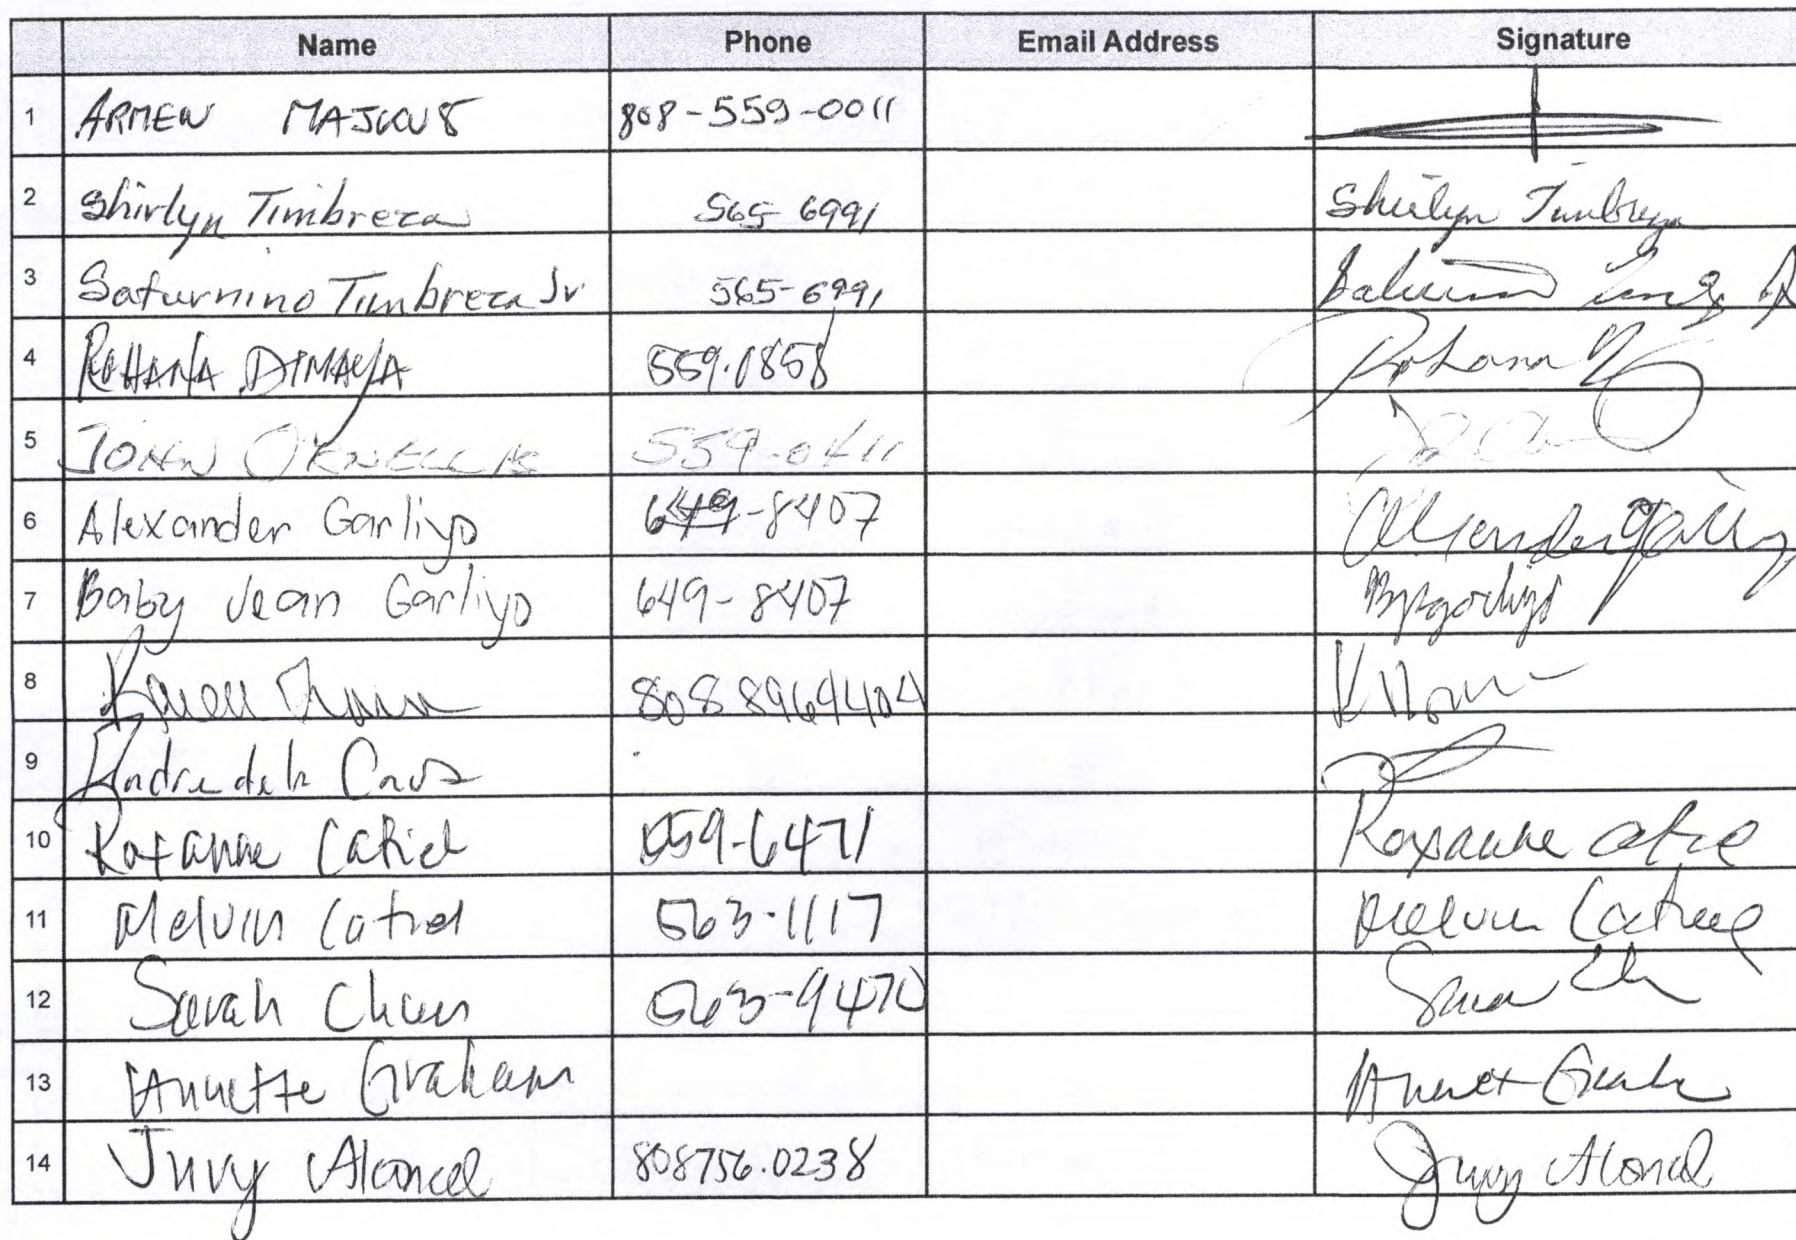 Name Phone Email Address Signature
1 ARMEN 808-559-0011
2 Shirlyn Timbreza 565-6991 Shirlyn Timbreza
3 Saturnino Timbreza Jr 565-6991
4 ROHANA DIMAYA 559.0858 Rohana
5 JOHN 559-0411
6 Alexander Garliyo 649-8407
7 Baby Jean Garliyo 649-8407
8 Karen 808 8964404 K
9 dela Cruz
10 Roxanne Catiel 059-6471 Roxanne
11 Melvin Catiel 563-1117 Melvin Catiel
12 Sarah Chun 563-9470
13 Annette Graham
14 Juvy Aloncel 808756.0238 Juvy Aloncel